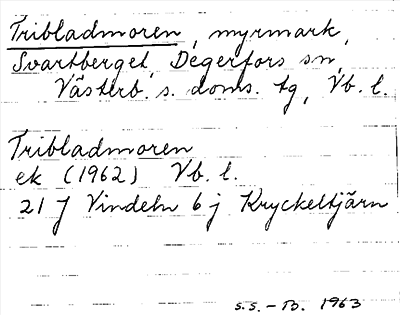 Tribladmoren, myrmark,
Svartberget, Degerfors sn,
Västerb. s. doms. tg, Vb. l.
Tribladmoren
ek (1962) Vb. l.
21 J Vindeln 6 j Kryckeltjärn
s.s. - B. 1963